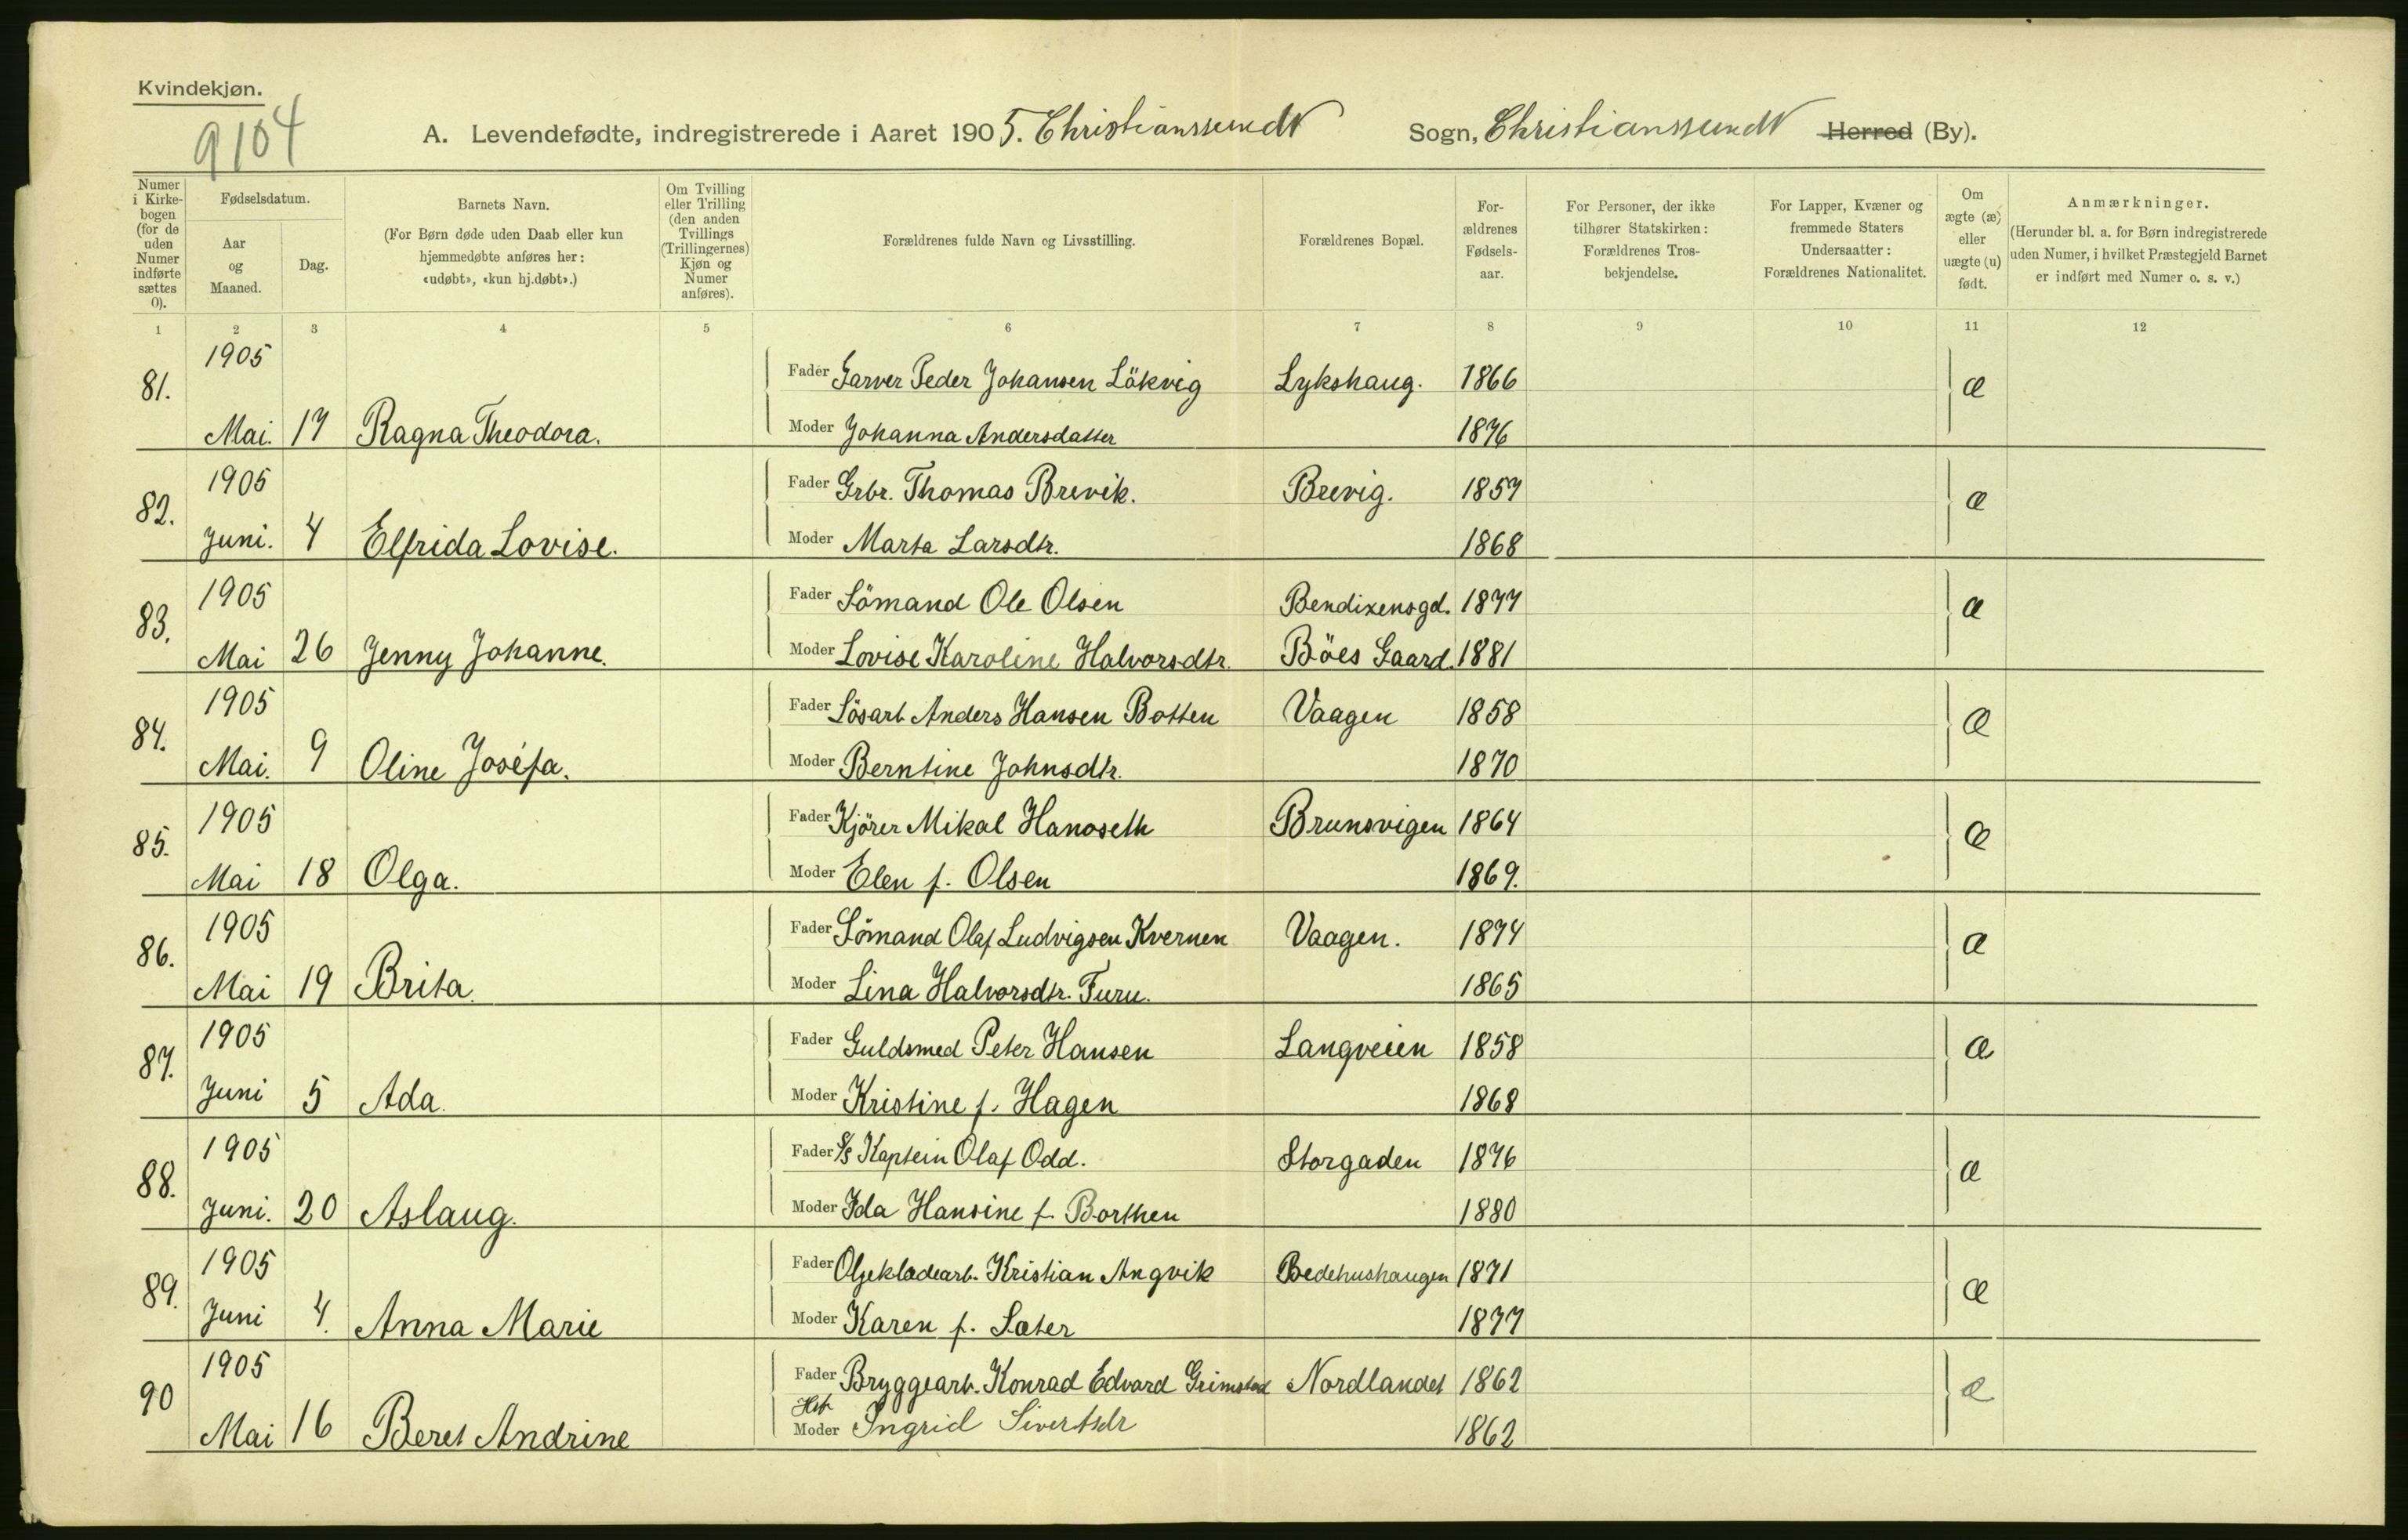 Kvindekjøn.
9104
A. Levendefødte, indregistrerede i Aaret 1905. Christianssund N Sogn, Christianssund N Herred (By).
Numer i Kirkebogen (for de uden Numer indførte sættes 0). Fødselsdatum. Aar og Maaned. Dag. Barnets Navn. (For Børn døde uden Daab eller kun hjemmedøbte anføres her: «udøbt», «kun hj.døbt».) Om Tvilling eller Trilling (den anden Tvillings (Trillingernes) Kjøn og Numer anføres). Forældrenes fulde Navn og Livsstilling. Forældrenes Bopæl. Forældrenes Fødselsaar. For Personer, der ikke tilhører Statskirken: Forældrenes Trosbekjendelse. For Lapper, Kvæner og fremmede Staters Undersaatter: Forældrenes Nationalitet. Om ægte (æ) eller uægte (u) født. Anmærkninger. (Herunder bl. a. for Børn indregistrerede uden Numer, i hvilket Præstegjeld Barnet er indført med Numer o. s. v.)
1 2 3 4 5 6 7 8 9 10 11 12
81. 1905 Fader Garver Peder Johansen Lökvig Lykshaug. 1866 æ
Mai. 17 Ragna Theodora. Moder Johanna Andersdatter 1876
82. 1905 Fader Grbr. Thomas Brevik. Brevig. 1857 æ
Juni. 4 Elfrida Lovise. Moder Marta Larsdtr. 1868
83. 1905 Fader Sömand Ole Olsen Bendixensgd. 1877 æ
Mai 26 Jenny Johanne. Moder Lovise Karoline Halvorsdtr. Böes Gaard. 1881
84. 1905 Fader Lösarb. Anders Hansen Botten Vaagen 1858 æ
Mai. 9 Oline Joséfa. Moder Berntine Johnsdtr. 1870
85. 1905 Fader Kjörer Mikal Hanoseth Brunsvigen 1864 æ
Mai 18 Olga. Moder Elen f. Olsen 1869.
86. 1905 Fader Sömand Olaf Ludvigsen Kvernen Vaagen. 1874 æ
Mai 19 Brita. Moder Lina Halvorsdtr. Furu. 1865
87. 1905 Fader Guldsmed Peter Hansen Langveien 1858 æ
Juni 5 Ada. Moder Kristine f. Hagen 1868
88. 1905 Fader S/S Kaptein Olaf Odd. Storgaden 1876 æ
Juni. 20 Aslaug. Moder Ida Hansine f. Borthen 1880
89. 1905 Fader Oljeklædearb. Kristian Angvik Bedehushaugen 1871 æ
Juni 4. Anna Marie Moder Karen f. Sæter 1877
90 1905 Fader Bryggearb. Konrad Edvard Grimstad Nordlandet 1862 æ
Mai 16 Beret Andrine Moder Ingrid Sivertsdr 1862